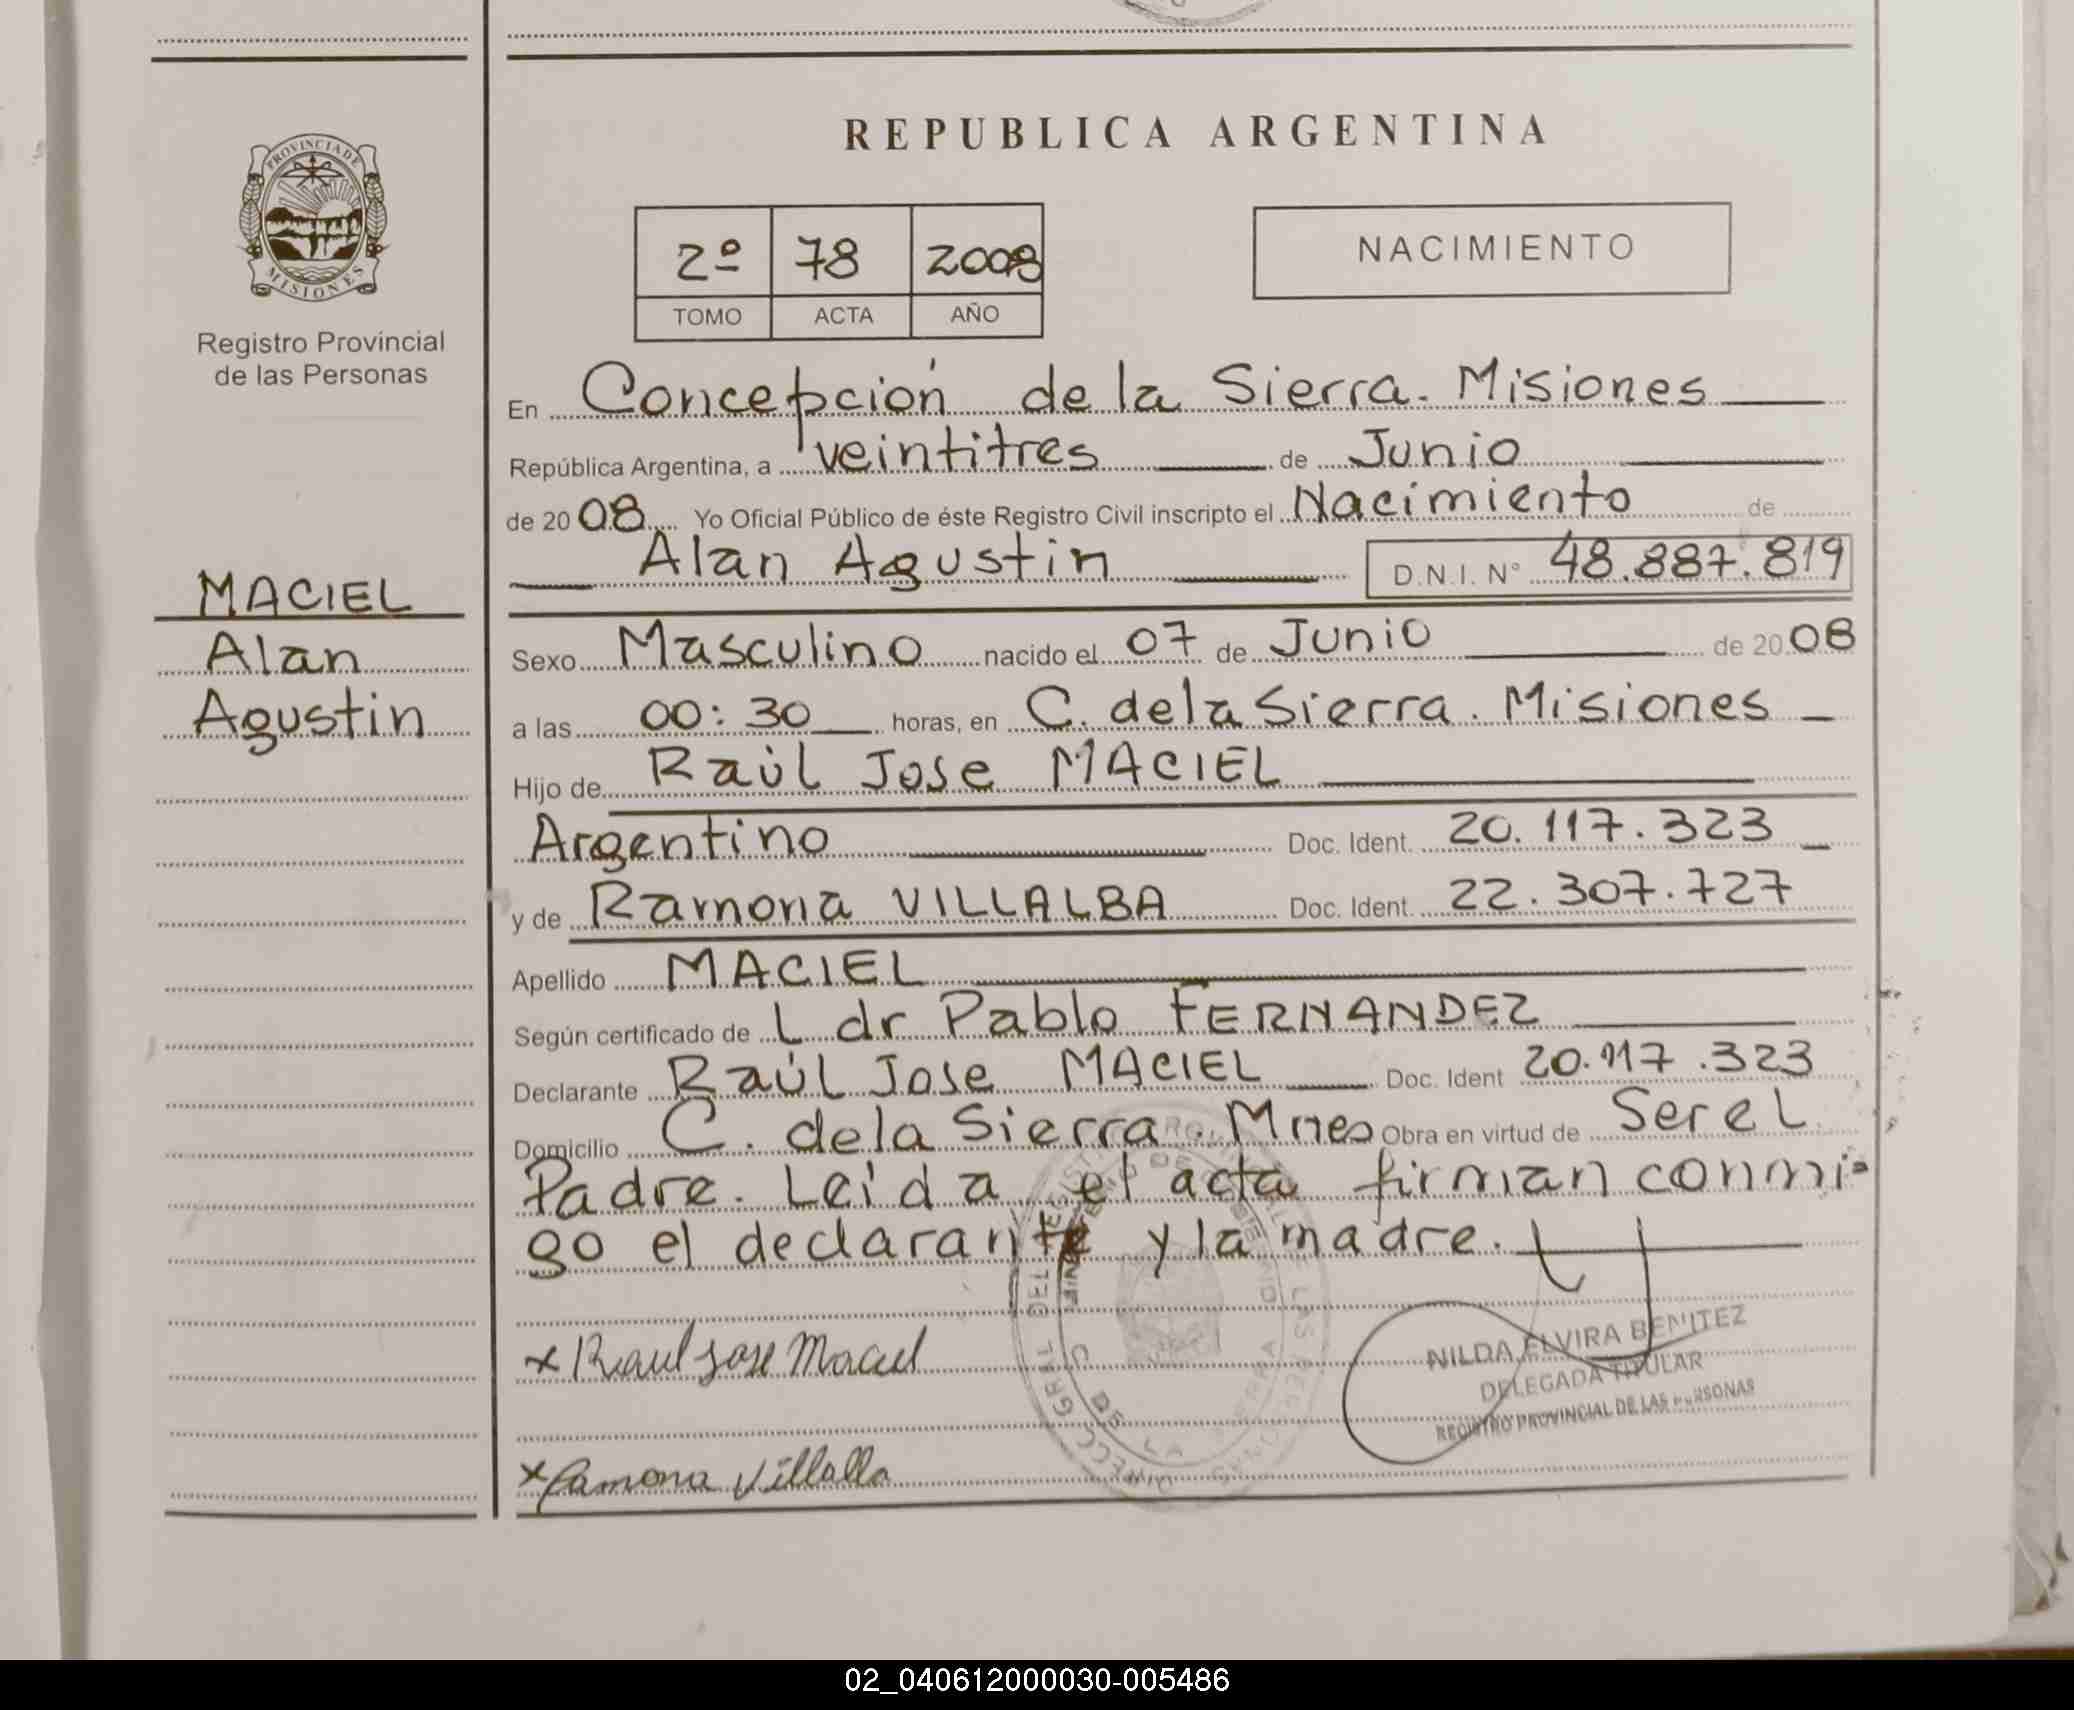 REPUBLICA ARGENTINA
PROVINCIA DE
MISIONES
Registro Provincial
de las Personas
2º 78 2008
TOMO ACTA AÑO
NACIMIENTO
MACIEL
Alan
Agustin
En Concepción de la Sierra. Misiones
República Argentina, a veintitres de Junio
de 2008 Yo Oficial Público de éste Registro Civil inscripto el Nacimiento de
Alan Agustin D.N.I. N° 48.887.819
Sexo Masculino nacido el 07 de Junio de 2008
a las 00:30 horas, en C. de la Sierra. Misiones
Hijo de Raúl Jose MACIEL
Argentino Doc. Ident. 20.117.323
y de Ramona VILLALBA Doc. Ident. 22.307.727
Apellido MACIEL
Según certificado de L dr Pablo FERNANDEZ
Declarante Raúl Jose MACIEL Doc. Ident 20.117.323
Domicilio C. de la Sierra. Mnes Obra en virtud de Ser el
Padre. Leida el acta firman conmi-
go el declarante y la madre.
x Raul Jose Maciel
x Ramona Villalba
NILDA ELVIRA BENITEZ
DELEGADA TITULAR
REGISTRO PROVINCIAL DE LAS PERSONAS
02_040612000030-005486